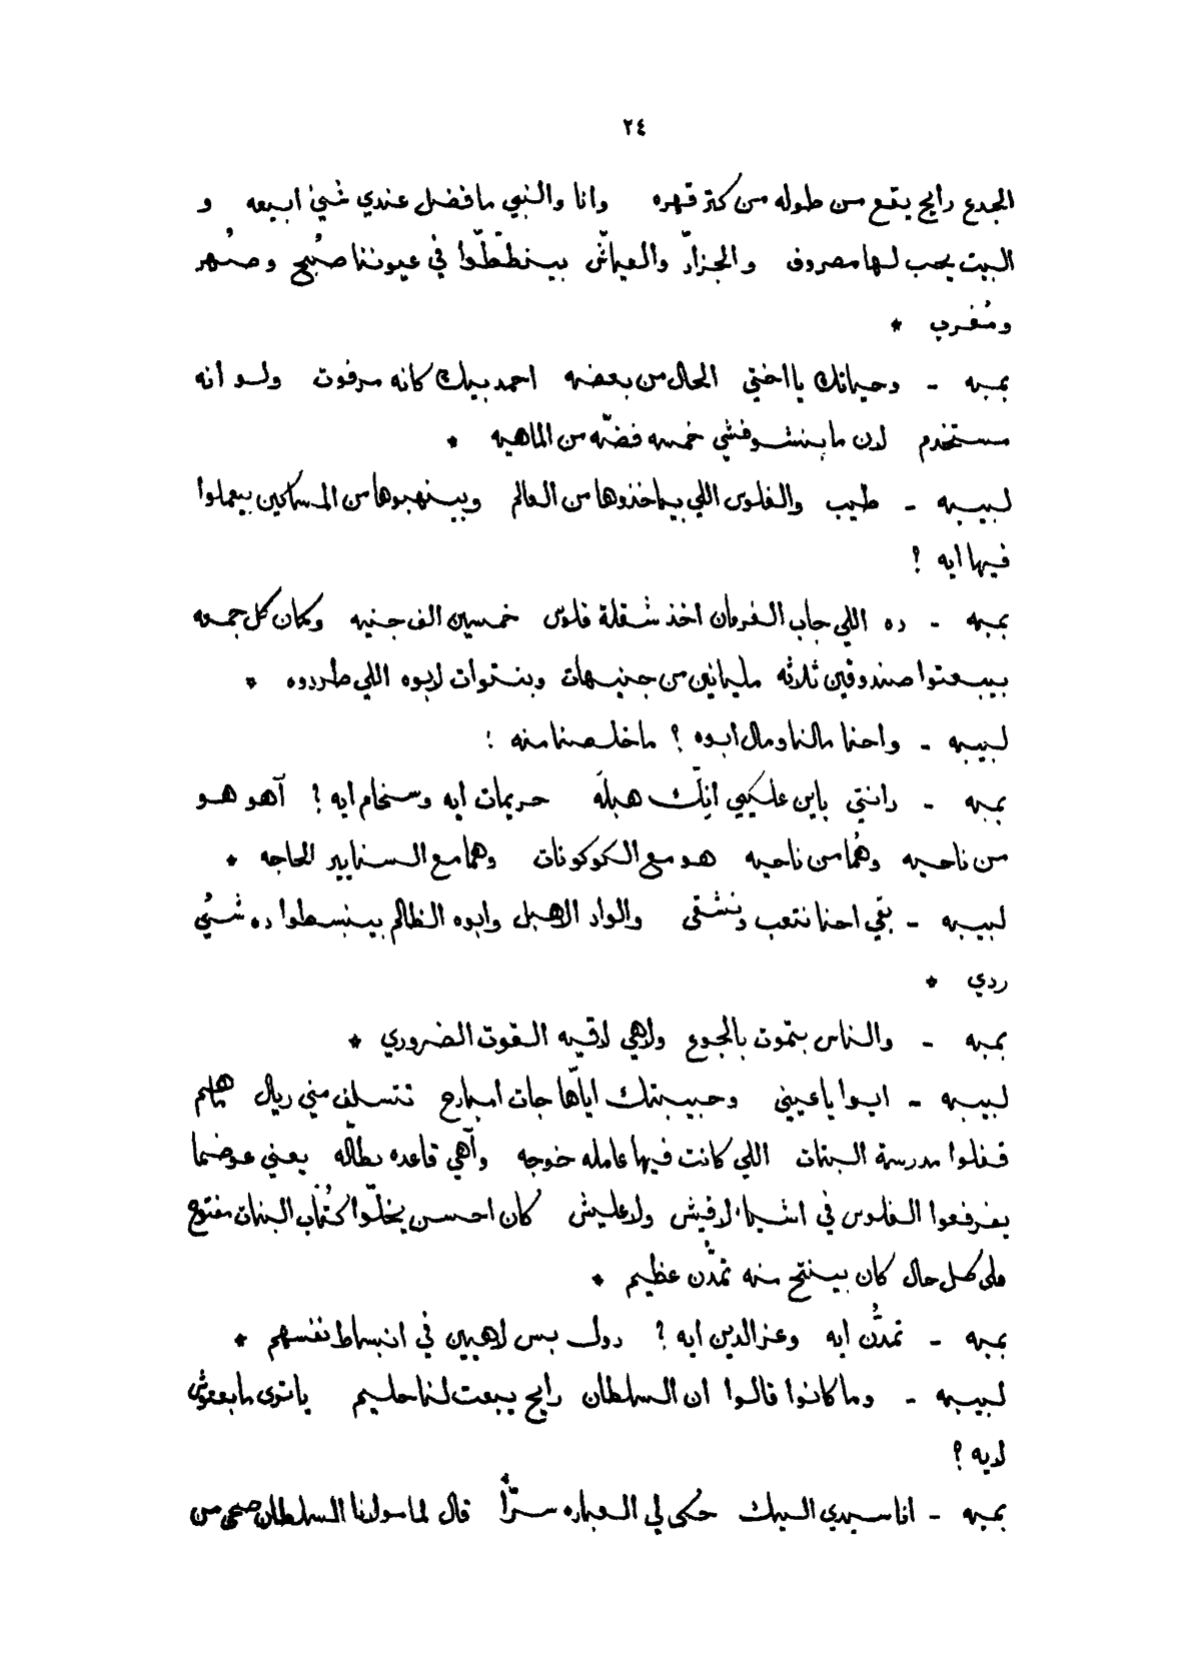 ٢٤
الجدع رايح يقع من طوله من كتر قهره وانا والنبي ما فضل عندي شيئ ابيعه و
البيت يحب لها مصروف والجزّار والعيّاش بينطّطوا في عيوننا صُبح وضُهر
ومُغرب *
بمبه - وحياتك يا اختي الحال من بعضه احمد بيك كانه مرفوت ولو انه
مستخدم لان ما بنشوفشي خمسه فضّه من الماهيه *
لبيبه - طيب والفلوس اللي بياخذوها من العالم وبينهبوها من المساكين بيعملوا
فيها ايه ؟
بمبه - ده اللي جاب الفرمان اخذ شقلة فلوس خمسين الف جنيه وكمان كل جمعه
بيبعتوا صندوقين ثلاثه مليانين من جنيهات وبنتوات لابوه اللي طردوه *
لبيبه - واحنا مالنا ومال ابوه ؟ ما خلصنا منه !
بمبه - دانتي باين عليكي انِّك هبلَه حريمات ايه وسخام ايه ؟ آهو هو
من ناحيه وهُما من ناحيه هو مع الكوكونات وهما مع السنايير الحاجه *
لبيبه - بقي احنا نتعب ونشقى والواد الاهبل وابوه الظالم بينبسطوا ده شيئ
ردي *
بمبه - والناس بتموت بالجوع ولاهي لاقيه القوت الضروري *
لبيبه - ايوا يا عيني وحبيبتك اياها جات امبارح تتسلف مني ريال
قفلوا مدرسة البنات اللي كانت فيها عامله خوجه وآهي قاعده بطّاله يعني عوضما
يفرقعوا الفلوس في اشياء لافيش ولا عليش كان احسن يخلّوا كُتّاب البنات مفتوح
على كل حال كان بينتج منه تمدُّن عظيم *
بمبه - تمدُّن ايه وعز الدين ايه ؟ دول بس لاهيين في انبساط نفسهم *
لبيبه - وما كانوا قالوا ان السلطان رايح يبعت لنا حليم ياترى ما بعتوش
لايه ؟
بمبه - انا سيدي البيك حكى لي العباره سرّاً قال لما مولانا السلطان صحي من